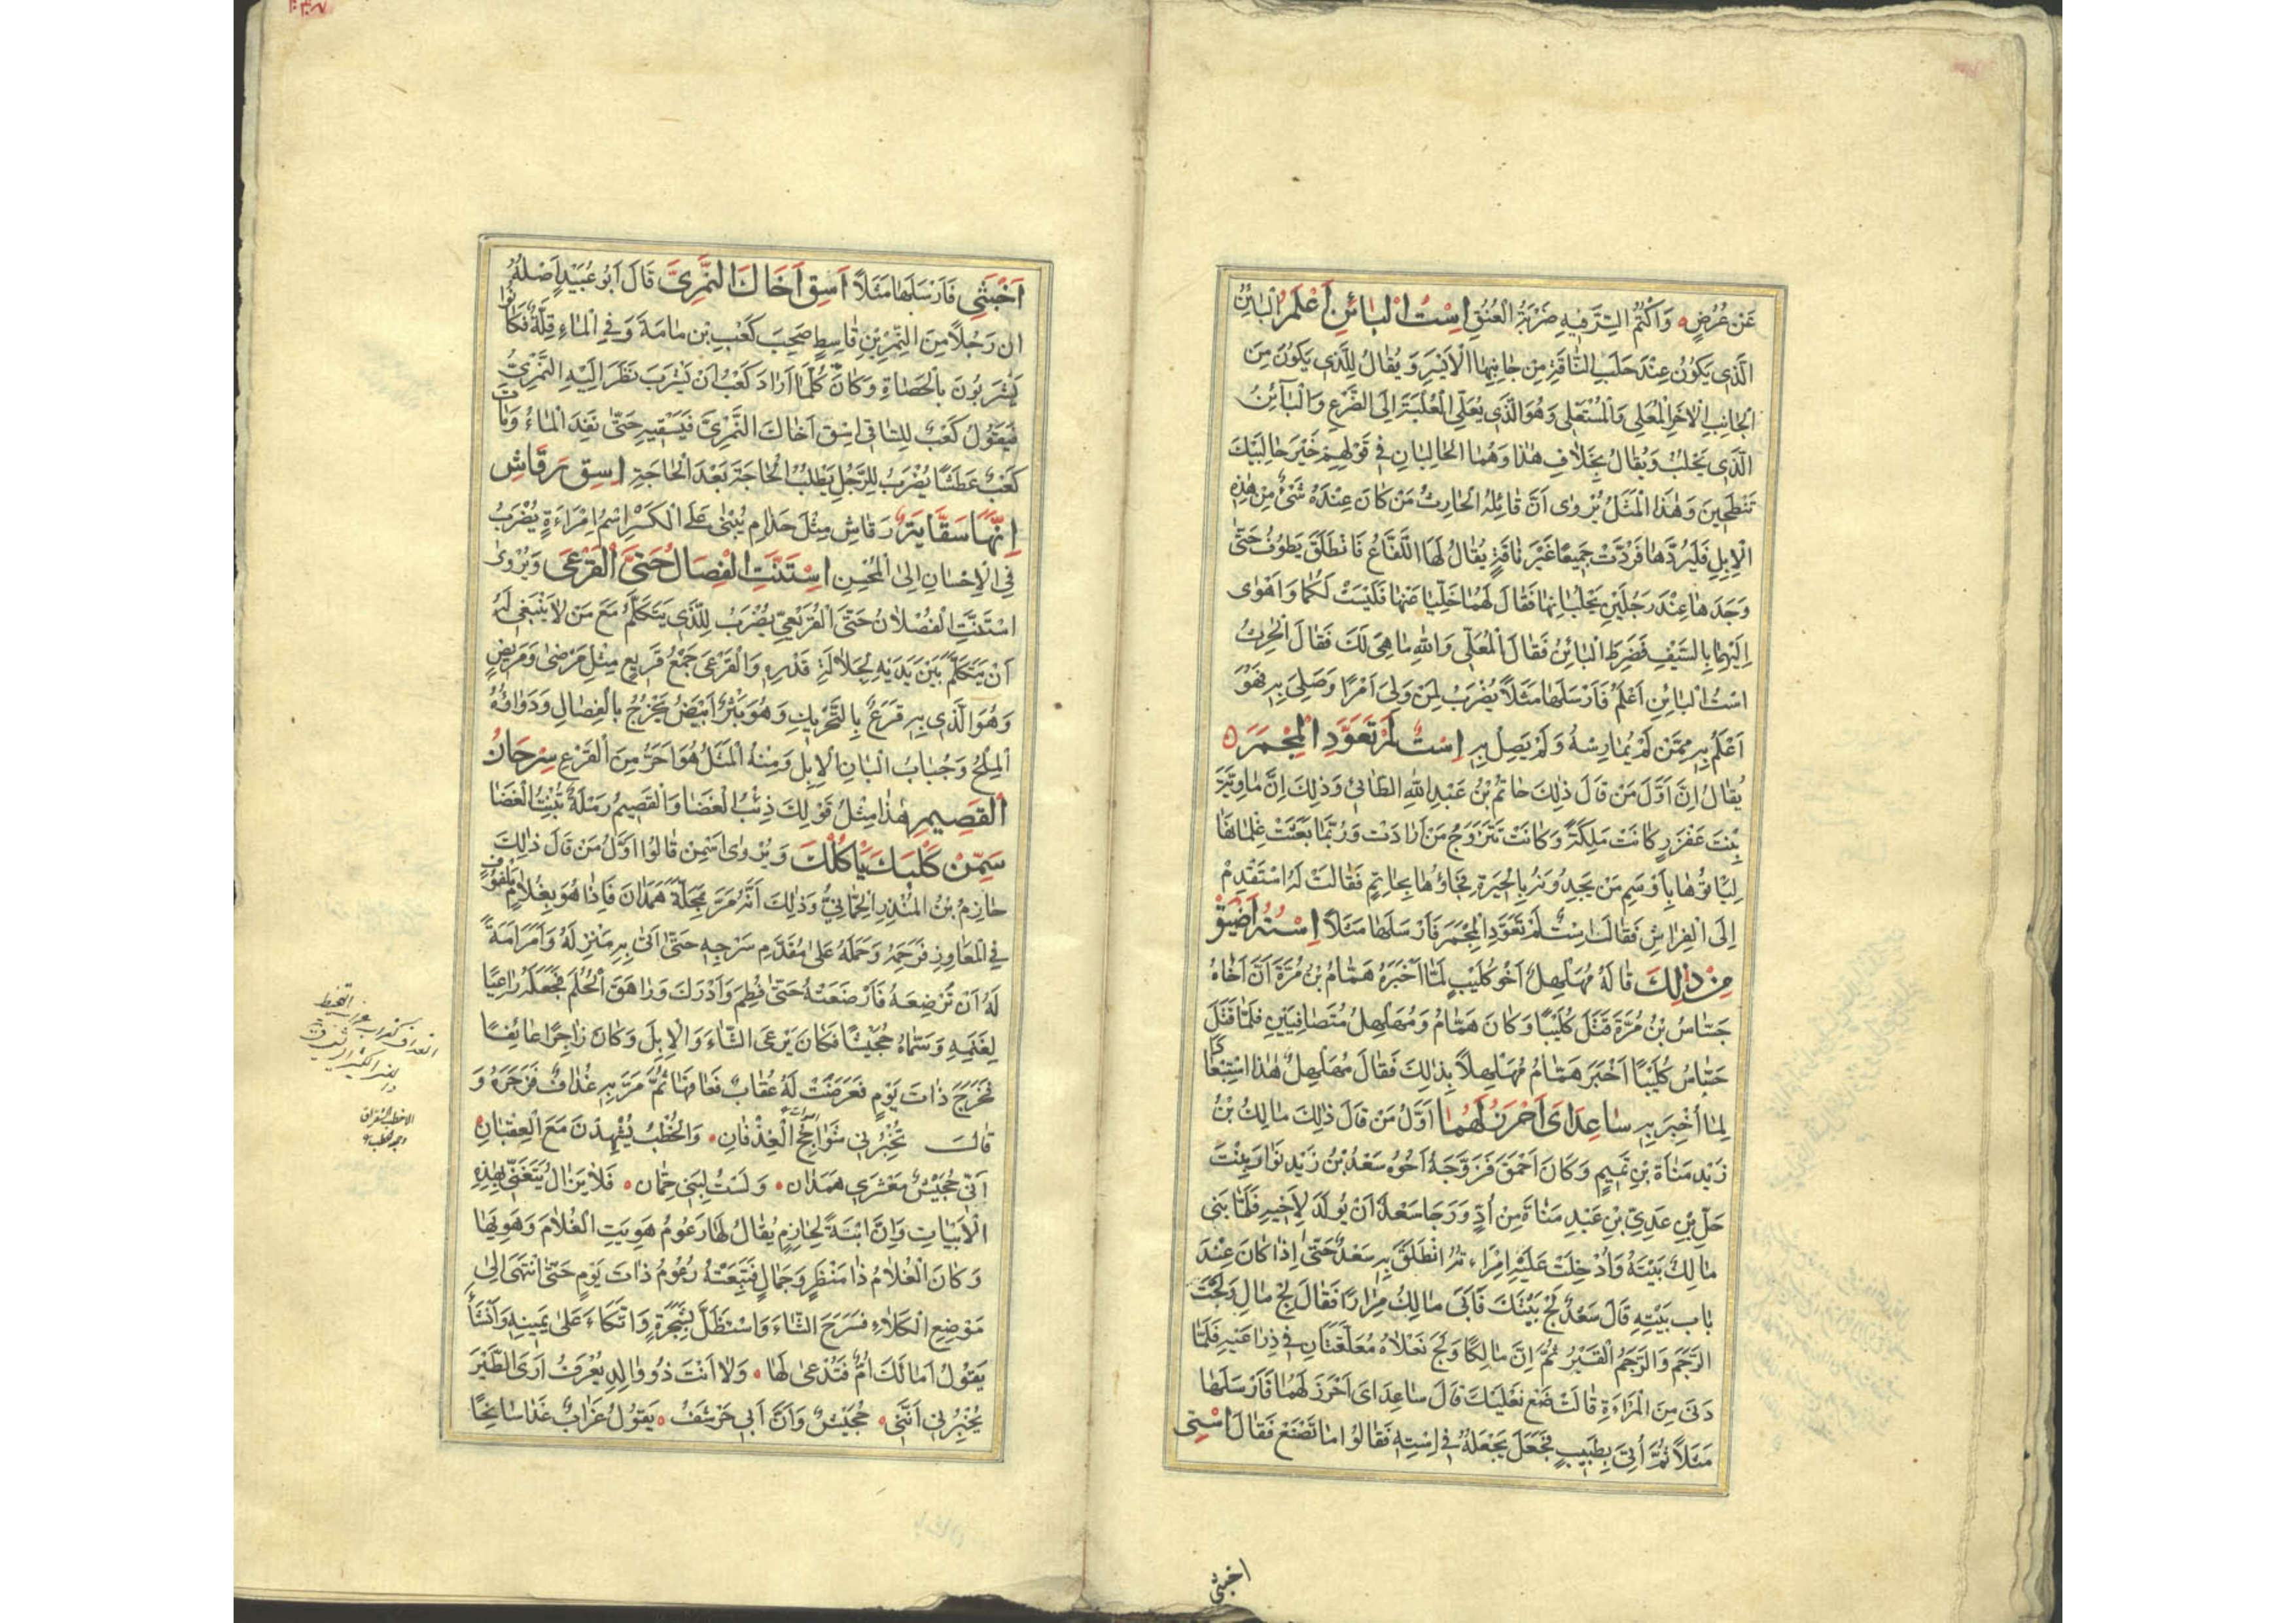 عَنْ عُرُضٍ وَاَكْتُمُ السِّرَّ فِيهِ ضَرْبَةُ الْعُنُقِ اِسْتُ الْبَائِنِ اَعْلَمُ الْبَائِنُ
الَّذِي يَكُونُ عِنْدَ حَلَبِ النَّاقَةِ مِنْ جَانِبِهَا الْاَيْسَرِ وَيُقَالُ لِلَّذِي يَكُونُ مِنَ
الْجَانِبِ الْاٰخَرِ الْمُعَلِّي وَالْمُسْتَعْلِي وَهُوَ الَّذِي يُعَلِّي الْعُلْبَةَ اِلَى الضَّرْعِ وَالْبَائِنُ
الَّذِي يَحْلُبُ وَيُقَالُ بِخِلَافِ هٰذَا وَهُمَا الْحَالِبَانِ فِي قَوْلِهِمْ خَيْرَ حَالِبَيْكَ
تَنْطَحِينَ وَهٰذَا الْمَثَلُ يُرْوٰى اَنَّ قَائِلَهُ الْحَارِثُ مَنْ كَانَ عِنْدَهُ شَئٌ مِنْ هٰذِهِ
الْاِبِلِ فَلْيَرُدَّهَا فَرُدَّتْ جَمِيعًا غَيْرَ نَاقَةٍ يُقَالُ لَهَا اللَّفَّاعُ فَانْطَلَقَ يَطُوفُ حَتّٰى
وَجَدَهَا عِنْدَ رَجُلَيْنِ يَحْلُبَانِهَا فَقَالَ لَهُمَا خَلِّيَا عَنْهَا فَلَيْسَتْ لَكُمَا وَاَهْوٰى
اِلَيْهِمَا بِالسَّيْفِ فَضَرِطَ الْبَائِنُ فَقَالَ الْمُعَلِّي وَاللّٰهِ مَا هِيَ لَكَ فَقَالَ الْحٰرِثُ
اسْتُ الْبَائِنِ اَعْلَمُ فَاَرْسَلَهَا مَثَلًا يُضْرَبُ لِمَنْ وَلِيَ اَمْرًا وَصَلِيَ بِهِ فَهُوَ
اَعْلَمُ بِهِ مِمَّنْ لَمْ يُمَارِسْهُ وَلَمْ يَصِلْ بِهِ اِسْتٌ لَمْ تَعَوَّدِ الْمِجْمَرَ
يُقَالُ اِنَّ اَوَّلَ مَنْ قَالَ ذٰلِكَ حَاتِمُ بْنُ عَبْدِ اللّٰهِ الطَّائِي وَذٰلِكَ اِنَّ مَاوِيَّةَ
بِنْتَ عَفْزَرٍ كَانَتْ مَلِكَةً وَكَانَتْ تَتَزَوَّجُ مَنْ اَرَادَتْ وَرُبَّمَا بَعَثَتْ غِلْمَانَهَا
لِيَأتُوهَا بِاَوْسَمِ مَنْ يَجِدُونَهُ بِالْحِيرَةِ فَجَاؤُهَا بِحَاتِمٍ فَقَالَتْ لَهُ اسْتَقْدِمْ
اِلَى الْفِرَاشِ فَقَالَ اسْتٌ لَمْ تَعَوَّدِ الْمِجْمَرَ فَاَرْسَلَهَا مَثَلًا اِسْتُهُ اَضْيَقُ
مِنْ ذٰلِكَ قَالَهُ مُهَلْهِلٌ اَخُو كُلَيْبٍ لَمَّا اَخْبَرَهُ هَمَّامُ بْنُ مُرَّةَ اَنَّ اَخَاهُ
جَسَّاسُ بْنُ مُرَّةَ قَتَلَ كُلَيْبًا وَكَانَ هَمَّامُ وَمُهَلْهِلُ مُتَصَافِيَيْنِ فَلَمَّا قَتَلَ
جَسَّاسُ كُلَيْبًا اَخْبَرَ هَمَّامُ مُهَلْهِلًا بِذٰلِكَ فَقَالَ مُهَلْهِلٌ هٰذَا اسْتِبْعَادًا
لِمَا اُخْبِرَ بِهِ سَاعِدَايَ اَحْرَزُ لَهُمَا اَوَّلُ مَنْ قَالَ ذٰلِكَ مَالِكُ بْنُ
زَيْدِ مَنَاةَ بْنِ تَمِيمٍ وَكَانَ اَحْمَقَ فَزَوَّجَهُ اَخُوهُ سَعْدُ بْنُ زَيْدٍ نَوَارَ بِنْتَ
حَلِّ بْنِ عَدِيِّ بْنِ عَبْدِ مَنَاةَ مِنْ اُدٍّ وَرَجَا سَعْدٌ اَنْ يُولَدَ لِاَخِيهِ فَلَمَّا بَنٰى
مَالِكٌ بَيْتَهُ وَاُدْخِلَتْ عَلَيْهِ امْرَاَتُهُ انْطَلَقَ بِهِ سَعْدٌ حَتّٰى اِذَا كَانَ عِنْدَ
بَابِ بَيْتِهِ قَالَ سَعْدٌ لِجْ بَيْتَكَ فَاَبٰى مَالِكٌ مِرَارًا فَقَالَ لِجْ مَالِ وَلَجْتَ
الرَّجَمَ وَالرَّجَمُ الْقَبْرُ ثُمَّ اِنَّ مَالِكًا وَلَجَ نَعْلَاهُ مُعَلَّقَتَانِ فِي ذِرَاعَيْهِ فَلَمَّا
دَنٰى مِنَ الْمَرْاَةِ قَالَتْ ضَعْ نَعْلَيْكَ قَالَ سَاعِدَايَ اَحْرَزُ لَهُمَا فَاَرْسَلَهَا
مَثَلًا ثُمَّ اُتِيَ بِطِيبٍ فَجَعَلَ يَجْعَلُهُ فِي اسْتِهِ فَقَالُوا مَا تَصْنَعُ فَقَالَ اسْتِي
اخبثي
اَخْبَثِي فَاَرْسَلَهَا مَثَلًا اَسْقِ اَخَاكَ النَّمَرِيَّ قَالَ اَبُو عُبَيْدٍ اَصْلُهُ
ان رَجُلًا مِنَ النَّمِرِ بْنِ قَاسِطٍ صَحِبَ كَعْبَ بْنَ مَامَةَ وَفِي الْمَاءِ قِلَّةٌ فَكَانُوا
يَشْرَبُونَ بِالْحَصَاةِ وَكَانَ كُلَّمَا اَرَادَ كَعْبٌ اَنْ يَشْرَبَ نَظَرَ اِلَيْهِ النَّمَرِيُّ
فَيَقُولُ كَعْبٌ لِلسَّاقِي اسْقِ اَخَاكَ النَّمَرِيَّ فَيَسْقِيهِ حَتّٰى نَفِدَ الْمَاءُ وَمَاتَ
كَعْبٌ عَطَشًا يُضْرَبُ لِلرَّجُلِ يَطْلُبُ الْحَاجَةَ بَعْدَ الْحَاجَةِ اِسْقِ رَقَاشِ
اِنَّهَا سَقَّايَةٌ رَقَاشِ مِثْلَ حَذَامِ يُبْنٰى عَلَى الْكَسْرِ اِسْمُ اِمْرَاَةٍ يُضْرَبُ
فِي الْاِحْسَانِ اِلَى الْمُحْسِنِ اِسْتَنَّتِ الْفِصَالُ حَتَّى الْقَرْعَى وَيُرْوٰى
اسْتَنَّتِ الْفُصْلَانُ حَتَّى الْقُرَيْعِي يُضْرَبُ لِلَّذِي يَتَكَلَّمُ مَعَ مَنْ لَا يَنْبَغِي لَهُ
اَنْ يَتَكَلَّمَ بَيْنَ يَدَيْهِ لِجَلَالَةِ قَدْرِهِ وَالْقَرْعَى جَمْعُ قَرِيعٍ مِثْلِ مَرْضٰى وَمَرِيضٍ
وَهُوَ الَّذِي بِهِ قَرَعٌ بِالتَّحْرِيكِ وَهُوَ بَثْرٌ اَبْيَضُ يَخْرُجُ بِالْفِصَالِ وَدَوَاؤُهُ
الْمِلْحُ وَجُبَابُ اَلْبَانِ الْاِبِلِ وَمِنْهُ الْمَثَلُ هُوَ اَحَرُّ مِنَ الْقَرَعِ سِرْحَانُ
الْقَصِيمِ هٰذَا مِثْلُ قَوْلِكَ ذِئْبُ الْغَضَا وَالْقَصِيمُ رَمْلَةٌ تُنْبِتُ الْغَضَا
سَمِّنْ كَلْبَكَ يَأْكُلْكَ وَيُرْوٰى اَسْمِنْ قَالُوا اَوَّلُ مَنْ قَالَ ذٰلِكَ
حَازِمُ بْنُ الْمُنْذِرِ الْحِمَّانِيُّ وَذٰلِكَ اَنَّهُ مَرَّ بِمَحَلَّةِ هَمْدَانَ فَاِذَا هُوَ بِغُلَامٍ مَلْفُوفٍ
فِي الْمَعَاوِزِ فَرَحِمَهُ وَحَمَلَهُ عَلٰى مُقَدَّمِ سَرْجِهِ حَتّٰى اَتٰى بِهِ مَنْزِلَهُ وَاَمَرَ اَمَةً
لَهُ اَنْ تُرْضِعَهُ فَاَرْضَعَتْهُ حَتّٰى فُطِمَ وَاَدْرَكَ وَرَاهَقَ الْحُلُمَ فَجَعَلَهُ رَاعِيًا
لِغَنَمِهِ وَسَمَّاهُ جُحَيْشًا فَكَانَ يَرْعَى الشَّاءَ وَالْاِبِلَ وَكَانَ زَاجِرًا عَائِفًا
فَخَرَجَ ذَاتَ يَوْمٍ فَعَرَضَتْ لَهُ عُقَابٌ فَعَافَهَا ثُمَّ مَرَّ بِهِ غُدَافٌ فَزَجَرَهُ وَ
قَالَ تُخْبِرُنِي شَوَاحِجُ الْغُدْفَانِ وَالْخُطْبُ يَشْهَدْنَ مَعَ الْعِقْبَانِ
اَنِّي جُحَيْشٌ مَعْشَرِي هَمْدَانِ وَلَسْتُ لِبَنِي حِمَّانِ فَلَا يَزَالُ يَتَغَنّٰى بِهٰذِهِ
الْاَبْيَاتِ وَاِنَّ ابْنَةً لِحَازِمٍ يُقَالُ لَهَا رَعُومُ هَوِيَتِ الْغُلَامَ وَهَوِيَهَا
وَكَانَ الْغُلَامُ ذَا مَنْظَرٍ وَجَمَالٍ فَتَبِعَتْهُ رَعُومُ ذَاتَ يَوْمٍ حَتَّى انْتَهٰى اِلٰى
مَوْضِعِ الْكَلَاءِ فَسَرَحَ الشَّاءَ وَاسْتَظَلَّ بِشَجَرَةٍ وَاتَّكَاءَ عَلٰى يَمِينِهِ وَاَنْشَأَ
يَقُولُ اَمَا لَكَ اُمٌّ فَتُدْعٰى لَهَا وَلَا اَنْتَ ذُو وَالِدٍ يُعْرَفُ اَرَى الطَّيْرَ
يُخْبِرُنِي اَنَّنِي جُحَيْشٌ وَاَنَّ اَبِي حَرْشَفُ يَقُولُ غُرَابٌ غَدَا سَانِحًا